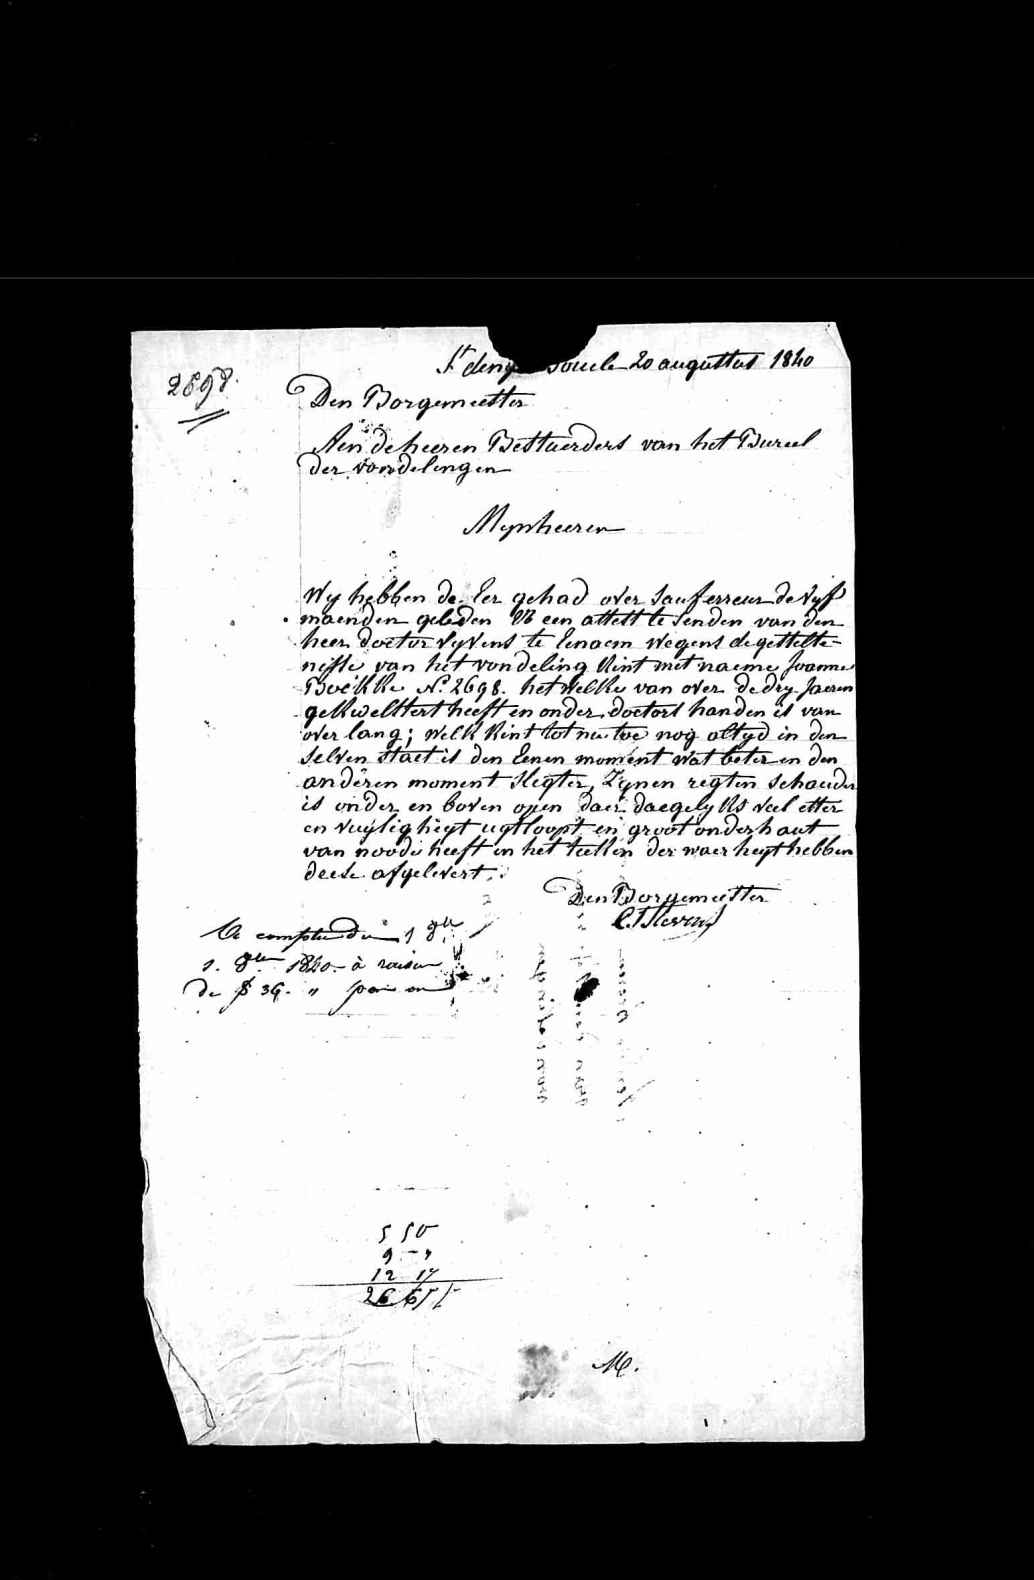 2698.
St denys Boucle 20 augustus 1840
Den Borgemeester
Aen de heeren Bestuerders van het Bureel
der vondelingen
Mynheeren
Wy hebben de Eer gehad over sauf erreur de vyf
maenden geleden UE een attest te senden van den
heer doctor vyvens te Eenaem wegens de gestelte-
nisse van het vondeling Kint met naeme Joanne
Boëkke N.º 2698. het welke van over de dry Jaeren
gekwelstert heeft en onder doctors handen is van
over lang; welk Kint tot nu toe nog altyd in den
selven staet is den Eenen moment wat beter en den
anderen moment slegter, Zynen regten schouder
is onder en boven open daer daegelyks veel etter
en vuyligheyt uytloopt en groot onderhaut
van noode heeft in het teeken der waerheyt hebben
deese afgelevert.
Den Borgemeester
A compter du 1 8bre
1. 8bre 1840.- à raison
de f 36. " par an
5 50
9 - "
12 17
26 67
M.